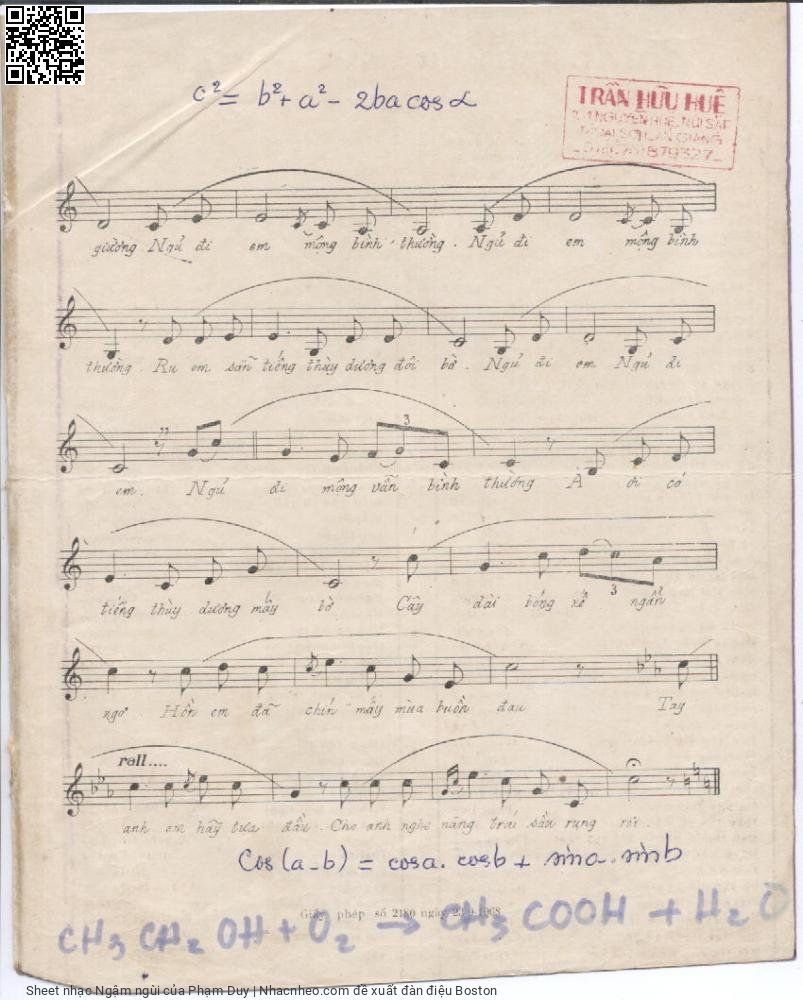 c² = b² + a² - 2ba cos α
TRẦN HỮU HUỆ
giường Ngủ đi em mộng bình thường. Ngủ đi em mộng bình
thường Ru em sẵn tiếng thùy dương đôi bờ. Ngủ đi em Ngủ đi
3
em. Ngủ đi mộng vẫn bình thường À ơi có
tiếng thùy dương mấy bờ Cây dài bóng xế ngẩn
3
ngơ Hồn em đã chín mấy mùa buồn đau Tay
rall....
anh em hãy tựa đầu. Cho anh nghe nặng trái sầu rụng rơi.
Cos(a-b) = cosa. cosb + sina. sinb
Giấy phép số 2180 ngày 1968
CH₃ CH₂ OH + O₂ → CH₃ COOH + H₂O
Sheet nhạc Ngậm ngùi của Phạm Duy | Nhacnheo.com đề xuất đàn điệu Boston